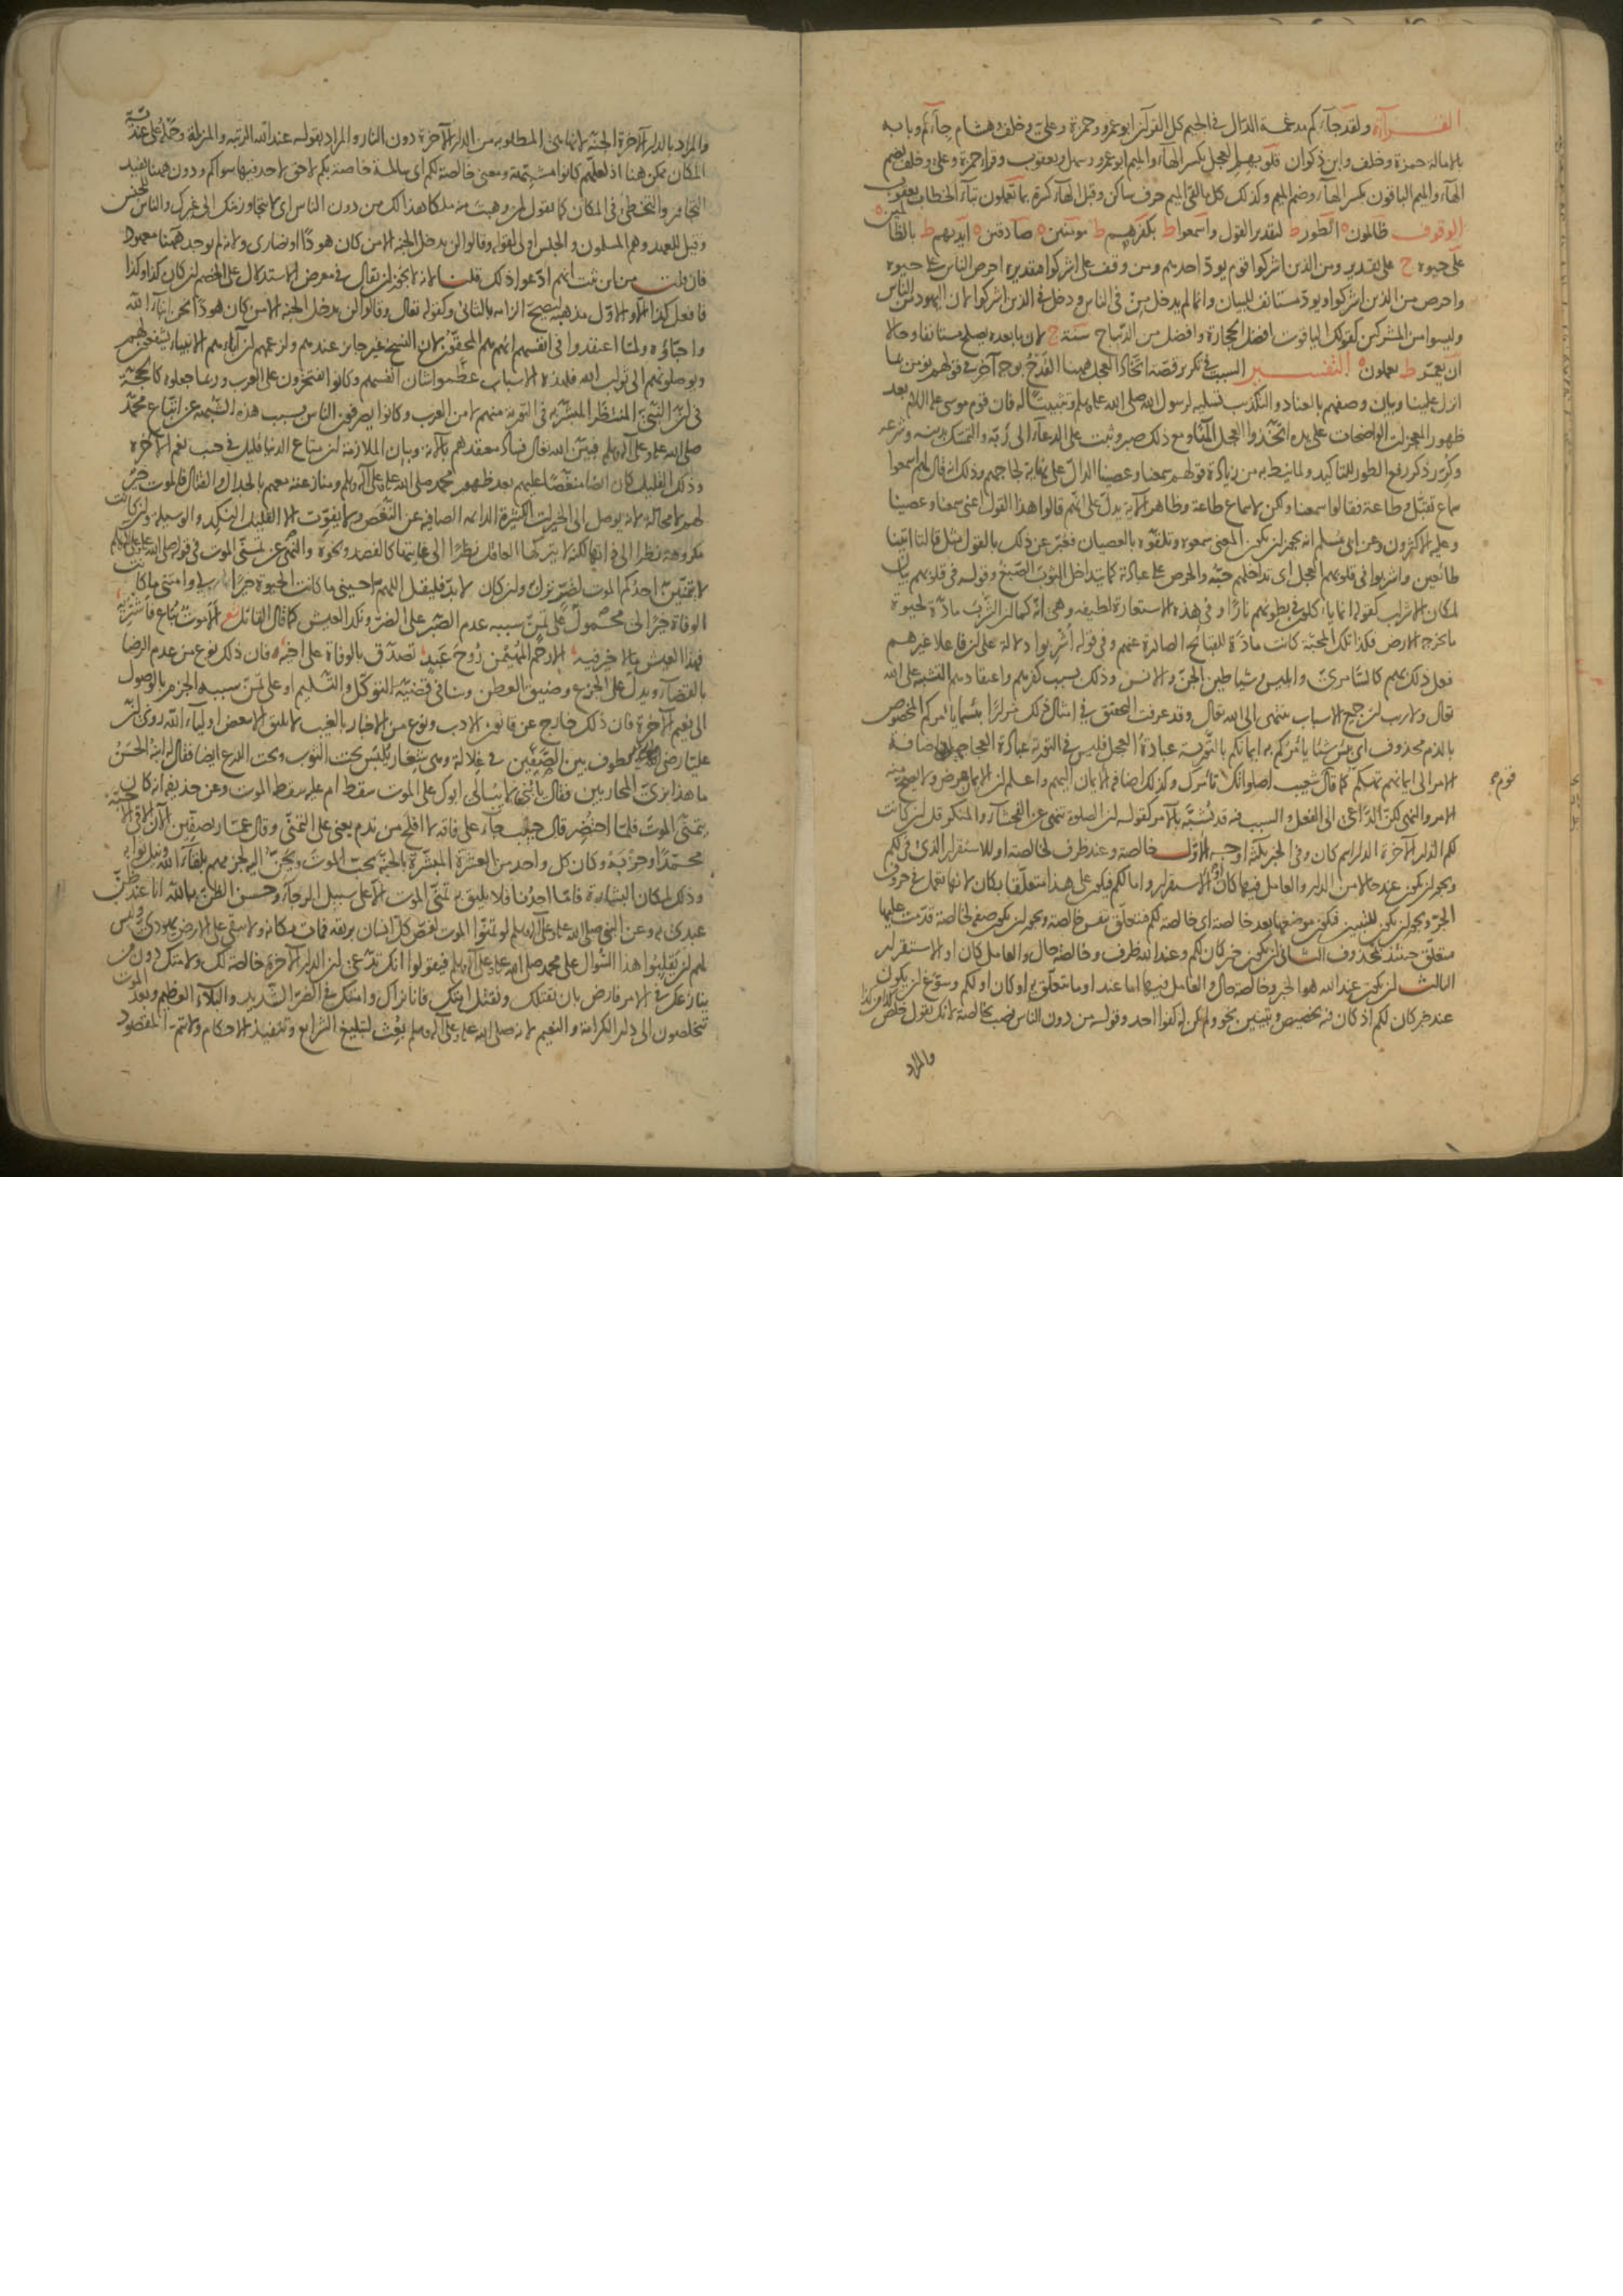 القراآت ولقد جاءكم مدغمة الدال في الجيم كل القرآن ابو عمرو وحمزة وعلي وخلف وهشام جاءكم وبابه
بالامالة حمزة وخلف وابن ذكوان قلوبهم العجل بكسر الهاء والميم ابو عمرو وسهل ويعقوب وقرا حمزة وعلي وخلف بضم
الهاء والميم الباقون بكسر الهاء وضم الميم وكذلك كل ما لقي الميم حرف ساكن وقبل الهاء كسرة بما تعملون بتاء الخطاب يعقوب
الوقوف ظالمون ه الطور ط لتقدير القول واسمعوا ط بكفرهم ط مومنين ه صادقين ه ايديهم ط بالظالمين ه
على حيوة ج على تقدير ومن الذين اشركوا قوم يود احدهم ومن وقف على اشركوا فتقديره احرص الناس على حيوة
واحرص من الذين اشركوا ويود مستانف للبيان وانما لم يدخل من في الناس ودخل في الذين اشركوا لان اليهود من الناس
وليسوا من المشركين كقولك الياقوت افضل الحجارة وافضل من الديباج سنة ج لان ما بعده يصلح مستانفا وحالا
ان يعمر ط يعملون ه التفسير السبب في تكرير قصة اتخاذ العجل ههنا القدح بوجه آخر في قولهم نومن بما
انزل علينا وبيان وصفهم بالعناد والتكذيب تسلية لرسول الله صلى الله عليه وسلم وتثبيتا له فان قوم موسى عليه السلام بعد
ظهور المعجزات الواضحات على يده اتخذوا العجل الها ومع ذلك صبر وثبت على الدعاء الى ربه والتمسك بدينه وشرعه
وكرر ذكر رفع الطور للتاكيد ولما نيط به من زيادة قولهم سمعنا وعصينا الدال على نهاية لجاجهم وذلك انه قال لهم اسمعوا
سماع تقبل وطاعة فقالوا سمعنا ولكن لا سماع طاعة وظاهر الآية يدل على انهم قالوا هذا القول اعني سمعنا وعصينا
وعليه الاكثرون وعن ابي مسلم انه يجوز ان يكون المعنى سمعوه وتلقوه بالعصيان فعبر عن ذلك بالقول مثل قالتا اتينا
طائعين واشربوا في قلوبهم العجل اي تداخلهم حبه والحرص على عبادته كما يتداخل الثوب الصبغ وقوله في قلوبهم بيان
لمكان الاشراب كقوله انما ياكلون في بطونهم نارا وفي هذه الاستعارة لطيفة وهي انه كما ان الشرب مادة لحيوة
ما تخرجه الارض فكذا تلك المحبة كانت مادة للقبائح الصادرة عنهم وفي قوله اشربوا دلالة على ان فاعلا غيرهم
فعل ذلك بهم كالسامري وابليس وشياطين الجن والانس وذلك بسبب كفرهم واعتقادهم التشبيه على الله
تعالى ولا ريب ان جميع الاسباب تنتهي الى الله تعالى وقد عرفت التحقيق في امثال ذلك مرارا بئسما يامركم المخصوص
بالذم محذوف اي بئس شيئا يامركم به ايمانكم بالتورية عبادة العجل فليس في التورية عبادة العجاجيل واضافة
الامر الى ايمانهم تهكم كما قال قوم شعيب اصلواتك تامرك وكذلك اضافة الايمان اليهم واعلم ان الايمان عرض ولا يصح منه
الامر والنهي لكن الداعي الى الفعل والسبب فيه قد يشبه بالآمر كقوله ان الصلوة تنهى عن الفحشاء والمنكر قل ان كانت
لكم الدار الآخرة الدار اسم كان وفي الخبر ثلثة اوجه الاول خالصة وعند ظرف لخالصة او للاستقرار الذي في لكم
ويجوز ان يكون عند حالا من الدار والعامل فيها كان او الاستقرار واما لكم فيكون على هذا متعلقا بكان لانها تعمل في حروف
الجر ويجوز ان يكون للتبيين فيكون موضعها بعد خالصة اي خالصة لكم فتتعلق بنفس خالصة ويجوز ان يكون صفة لخالصة قدمت عليها
فيتعلق حينئذ بمحذوف الثاني ان يكون خبر كان لكم وعند الله ظرف وخالصة حال والعامل كان او الاستقرار
الثالث ان يكون عند الله هو الخبر وخالصة حال والعامل فيها اما عند او ما يتعلق به او كان او لكم وسوغ ان يكون
عند خبر كان لكم اذ كان فيه تخصيص وتبيين نحو ولم يكن له كفوا احد وقوله من دون الناس نصب بخالصة لانك تقول خلص كذا من كذا
والمراد
والمراد بالدار الآخرة الجنة لانها هي المطلوبة من الدار الآخرة دون النار والمراد بقوله عند الله الرتبة والمنزلة وحمله على عندية
المكان ممكن هنا اذ لعلهم كانوا مشبهة ومعنى خالصة لكم اي سالمة خاصة بكم لا حق لاحد فيها سواكم ودون ههنا تفيد
التجاوز والتخطي في المكان كما تقول لمن وهبت منه ملكا هذا لك من دون الناس اي لا يتجاوز منك الى غيرك والناس للجنس
وقيل للعهد وهم المسلمون والجنس اولى لقوله وقالوا لن يدخل الجنة الا من كان هودا او نصارى ولانه لم يوجد ههنا معهود
فان قلت من اين ثبت انهم ادعوا ذلك قلنا لانه لا يجوز ان يقال في معرض الاستدلال على الخصم ان كان كذا وكذا
فافعل كذا الا والاول مذهبه ليصح الزامه بالثاني وكقوله تعالى وقالوا لن يدخل الجنة الا من كان هودا نحن ابناء الله
واحباؤه ولما اعتقدوا في انفسهم انهم هم المحقون لان النسخ غير جائز عندهم ولزعمهم ان آباءهم الانبياء يشفعون لهم
ويوصلونهم الى ثواب الله فلهذه الاسباب عظموا شان انفسهم وكانوا يفتخرون على العرب وربما جعلوه كالحجة
في ان النبي المنتظر المبشر به في التورية منهم لا من العرب وكانوا يصرفون الناس بسبب هذه الشبهة عن اتباع محمد
صلى الله عليه وعلى آله وسلم فبين الله تعالى فساد معتقدهم بالآية وبيان الملازمة ان متاع الدنيا قليل في جنب نعم الآخرة
وذلك القليل كان ايضا منغصا عليهم بعد ظهور محمد صلى الله عليه وعلى آله وسلم ومنازعته معهم بالجدال والقتال فالموت خير
لهم لا محالة لانه يوصل الى الخيرات الكثيرة الدائمة الصافية عن النغص ولا يفوت الا القليل النكد والوسيلة وان كانت
مكروهة نظرا الى ذاتها لكنه لا يتركها العاقل نظرا الى غايتها كالفصد ونحوه والنهي عن تمني الموت في قوله صلى الله عليه وسلم
لا يتمنين احدكم الموت لضر نزل به وان كان لا بد فليقل اللهم احيني ما كانت الحيوة خيرا لي وامتني ما كانت
الوفاة خيرا لي محمول على تمن سببه عدم الصبر على الضر ونكد العيش كما قال القائل شعر الا موت يباع فاشتريه
فهذا العيش ما لا خير فيه الا رحم المهيمن روح عبد تصدق بالوفاة على اخيه فان ذلك نوع من عدم الرضا
بالقضاء ويدل على الجزع وضيق العطن وينافي قضية التوكل والتسليم او على تمن سببه الجزم بالوصول
الى نعيم الآخرة فان ذلك خارج عن قانون الادب ونوع من الاخبار بالغيب لا يليق الا ببعض اولياء الله روي ان
عليا رضي الله عنه كان يطوف بين الصفين في غلالة وهي شعار يلبس تحت الثوب وتحت الدرع ايضا فقال له ابنه الحسن
ما هذا بزي المحاربين فقال يا بني لا يبالي ابوك على الموت سقط ام عليه سقط الموت وعن حذيفة انه كان
يتمنى الموت فلما احتضر قال حبيب جاء على فاقة لا افلح من ندم يعني على التمني وقال عمار بصفين الآن الاقي الاحبة
محمدا وحزبه وكان كل واحد من العشرة المبشرة بالجنة يحب الموت ويحن اليه لجزمهم بلقاء الله ونيل ثوابه
وذلك لمكان البشارة فاما احدنا فلا يليق به تمني الموت الا على سبيل الرجاء وحسن الظن بالله انا عند ظن
عبدي بي وعن النبي صلى الله عليه وعلى آله وسلم لو تمنوا الموت لغص كل انسان بريقه فمات مكانه ولا بقي على الارض يهودي وليس
لهم ان يقلبوا هذا السؤال على محمد صلى الله عليه وعلى آله وسلم فيقولوا انك تدعي ان الدار الآخرة خالصة لك ولامتك دون من
ينازعك في الامر فارض بان نقتلك ونقتل امتك فانا نراك وامتك في الضر الشديد والبلاء العظيم وبعد الموت
تتخلصون الى دار الكرامة والنعيم لانه صلى الله عليه وعلى آله وسلم بعث لتبليغ الشرايع وتنفيذ الاحكام ولا يتم المقصود